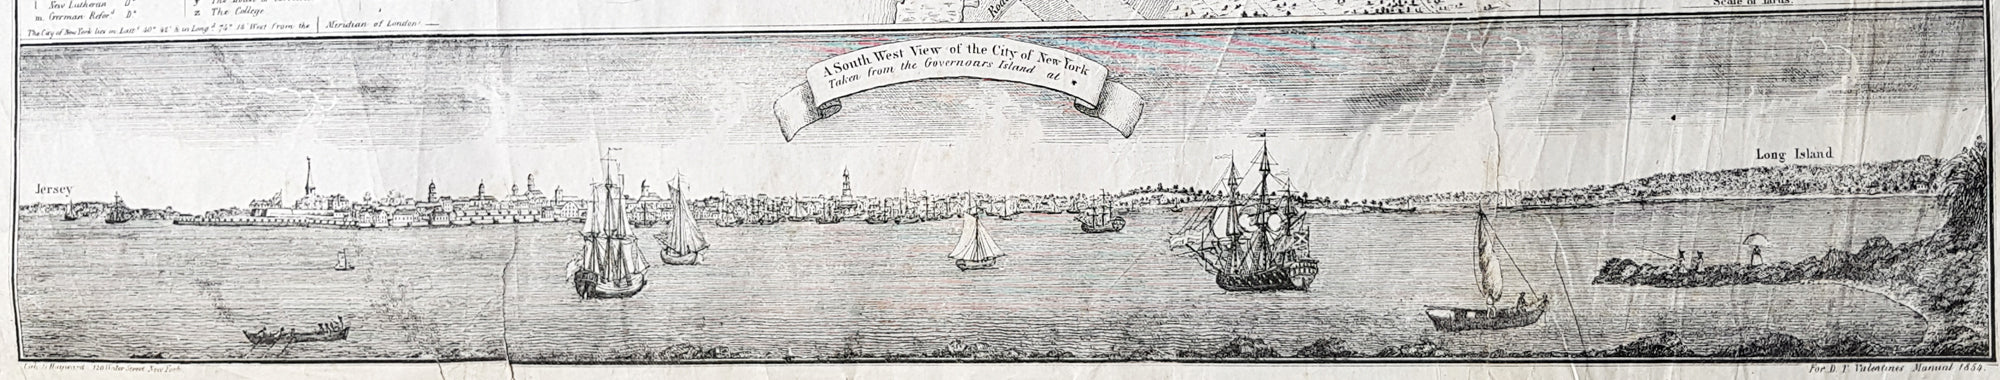 l New Lutheran D°
m. German Refor.d D°
z The College
Road
Scale of Yards.
The City of New York lies in Latt.d 40° 42' & in Long.d 74° 16' West from the Meridian of London.
A South West View of the City of New York
Taken from the Governours Island at *
Jersey
Long Island
Hayward 120 Water Street New York
For D. T. Valentines Manual 1854.